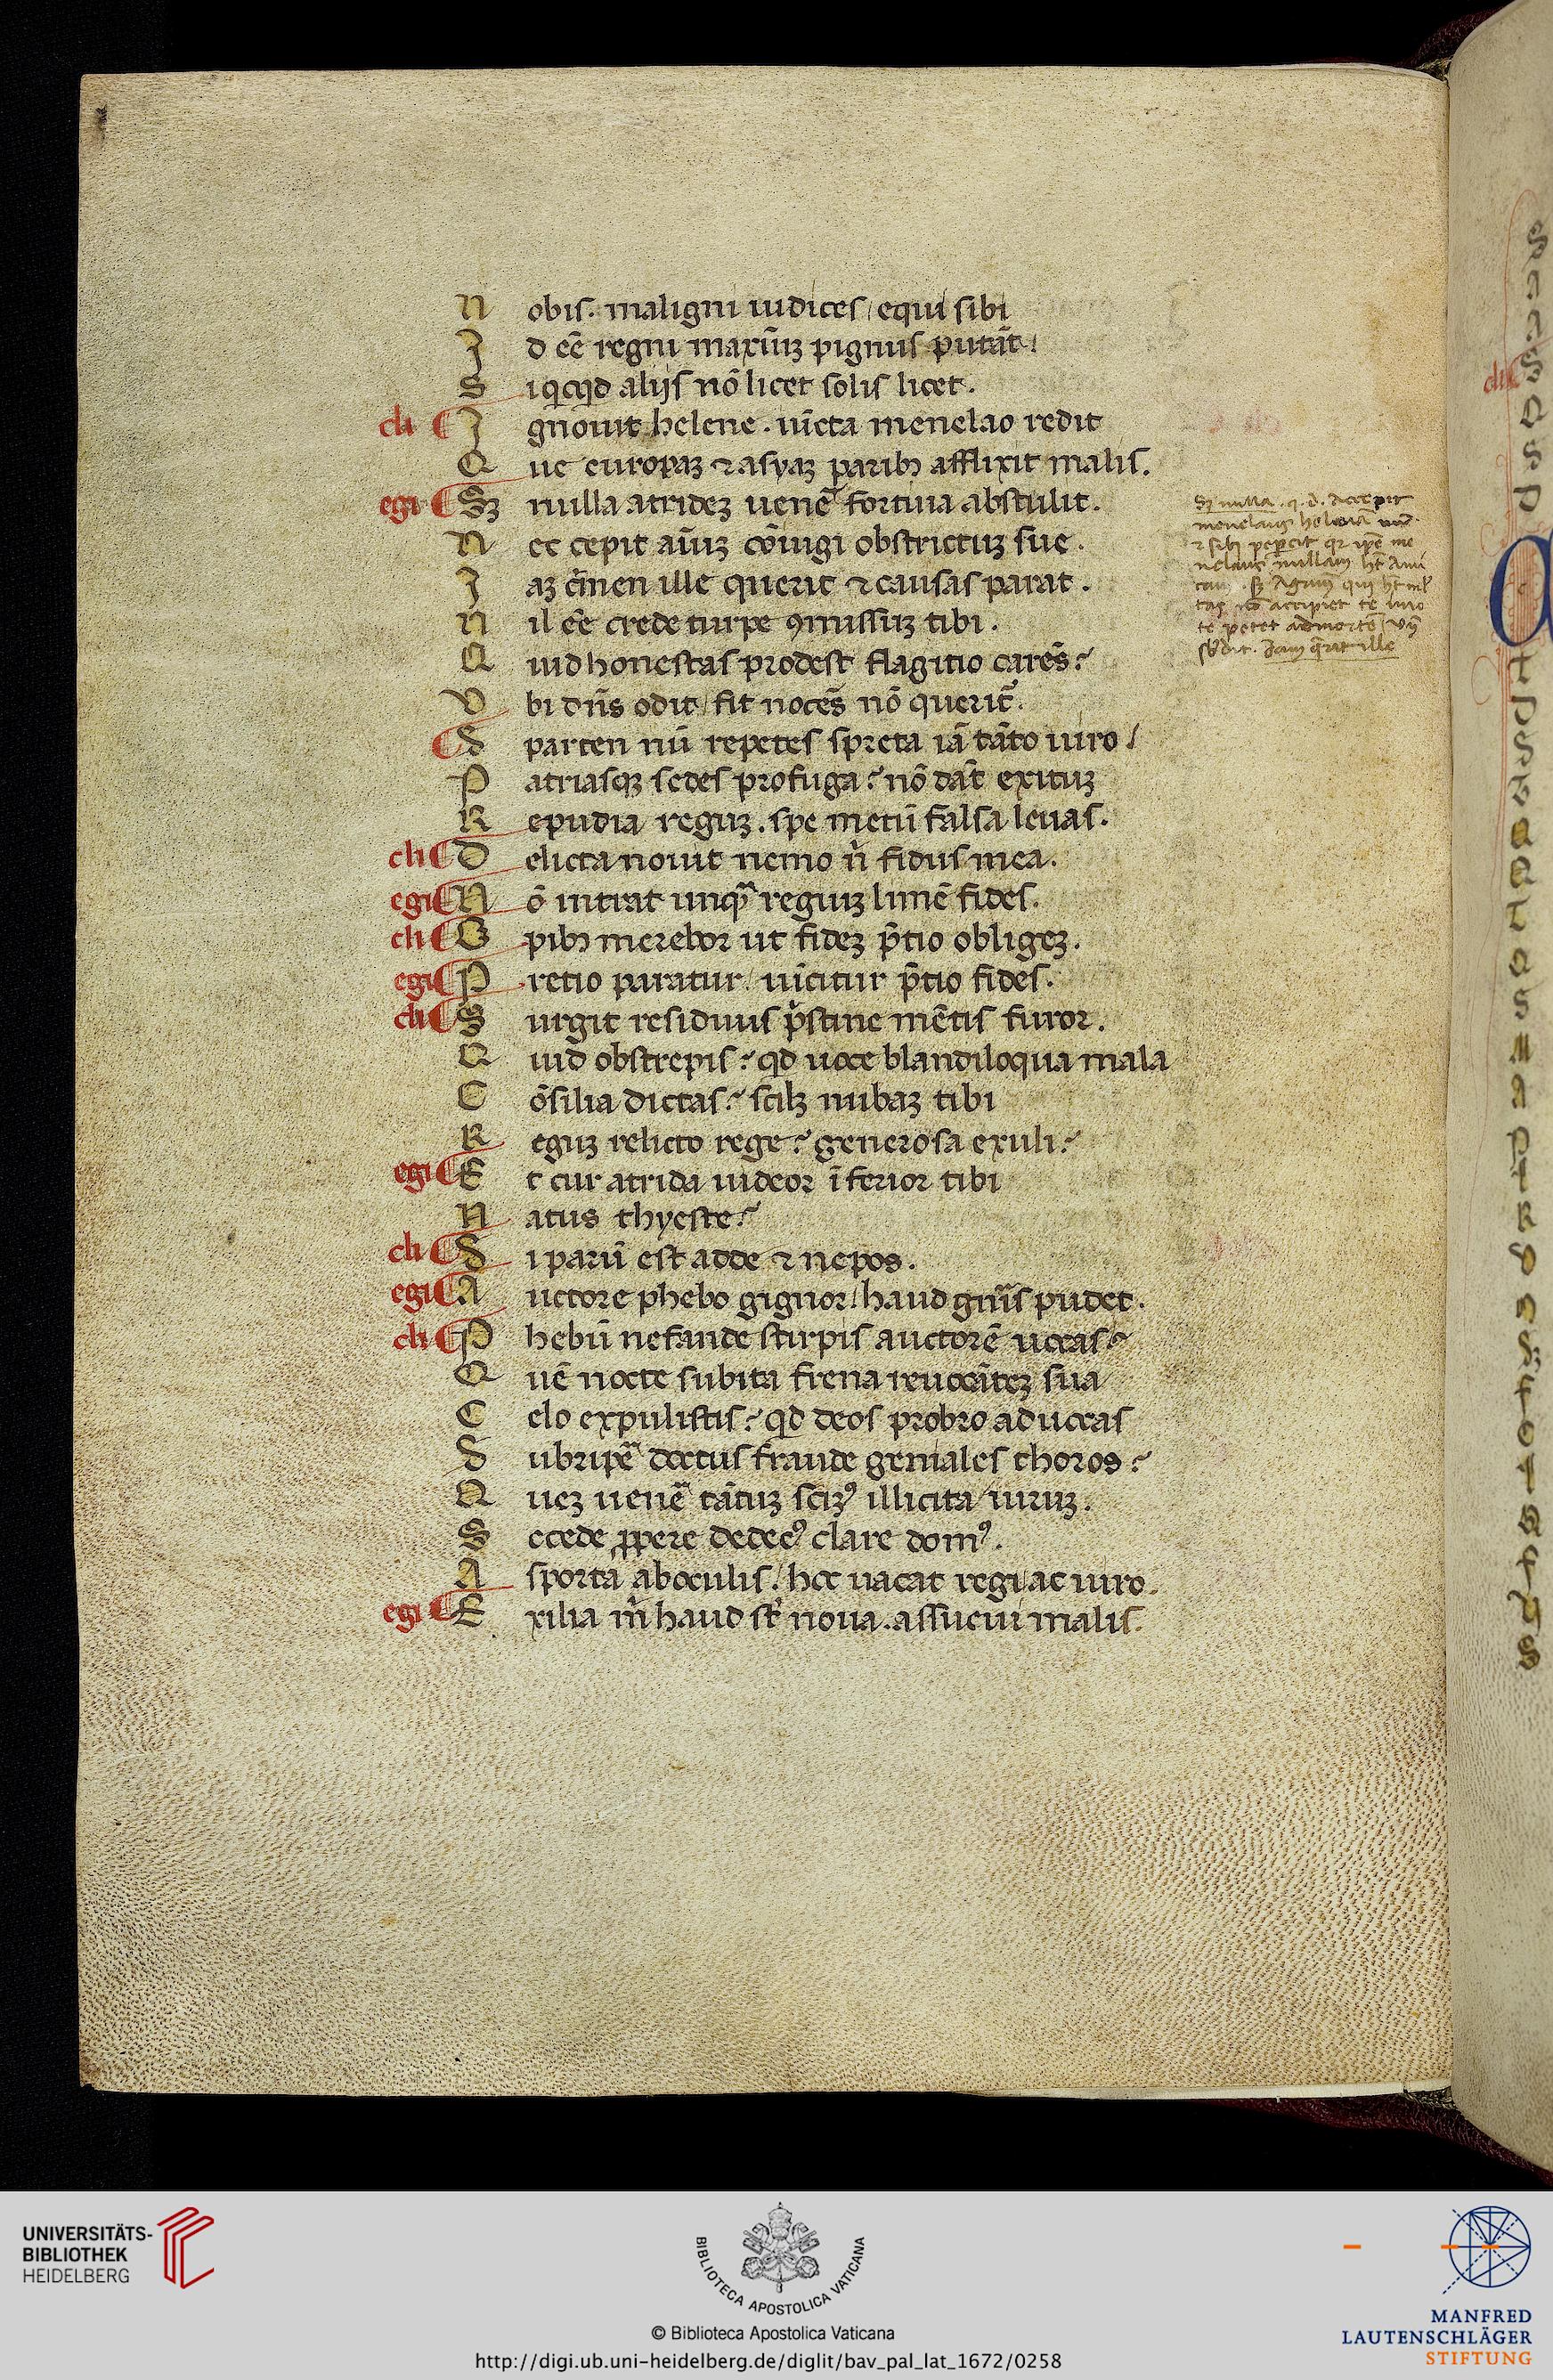 N obis. maligni iudices / equi sibi
I d eē regni maximū pignus putāt.
S iq̄cqd alijs nō licet solis licet.
cli I gnouit helene. iūcta menelao redit
Q ue europaꝫ ⁊ asyaꝫ paribꝫ afflixit malis.
egi Sꝫ nulla atrideꝫ uenē fortiua abstulit.
N ec cepit aīuꝫ cōiugi obstrictuꝫ sue.
I aꝫ c̄men ille querit ⁊ causas parat.
N il eē crede turpe ꝯmissuꝫ tibi.
Q uid honestas prodest flagitio carēs?
V bi dn̄s odit / fit nocēs nō querit̄.
S parten nū repetes spreta iā tāto uiro /
P atriasqꝫ sedes profuga? nō dāt exituꝫ
R epudia reguꝫ. spe metū falsa leuas.
cli D elicta nouit nemo n̄ fidus mea.
egi N ō intrat unqᵃ reguiꝫ limē fides.
cli O pibꝫ merebor ut fideꝫ p̄tio obligeꝫ.
egi P retio paratur / uīcitur p̄tio fides.
cli S urgit residuus p̄stine mētis furor.
Q uid obstrepis? qd uoce blandiloqua mala
C ōsilia dictas? scilꝫ nubaꝫ tibi
R eguꝫ relicto rege? generosa exuli?
egi E t cur atrida uideor īferior tibi
N atus thyeste?
cli S i parū est adde ⁊ nepos.
egi A uctore phebo gignor / haud gn̄is pudet.
cli P hebū nefande stirpis auctorē uocas?
Q uē nocte subita frena reuocāteꝫ sua
C elo expulistis? qd deos probro aduocas
S ubripē doctus fraude geniales thoros?
Q ueꝫ uenē tātuꝫ sciꝫꝰ illicita uiruꝫ.
S ecede ꝓpere dedecꝰ clare domꝰ.
A sporta aboculis. hec uacat regi ac uiro.
egi E xilia m̄ haud st̄ noua. assueui malis.
Sꝫ nulla. q. d. accepit
menelaus helenā
⁊ sibi pepercit qr ipē me
nelaus nullam ht̄ ami
cam. sꝫ Agmꝫ qui ht̄
tas nō accipiet te imo
te petet ad mortē
sb̄dit. Iam q̄rit ille
cli
UNIVERSITÄTS-
BIBLIOTHEK
HEIDELBERG
BIBLIOTECA APOSTOLICA VATICANA
© Biblioteca Apostolica Vaticana
http://digi.ub.uni-heidelberg.de/diglit/bav_pal_lat_1672/0258
MANFRED
LAUTENSCHLÄGER
STIFTUNG